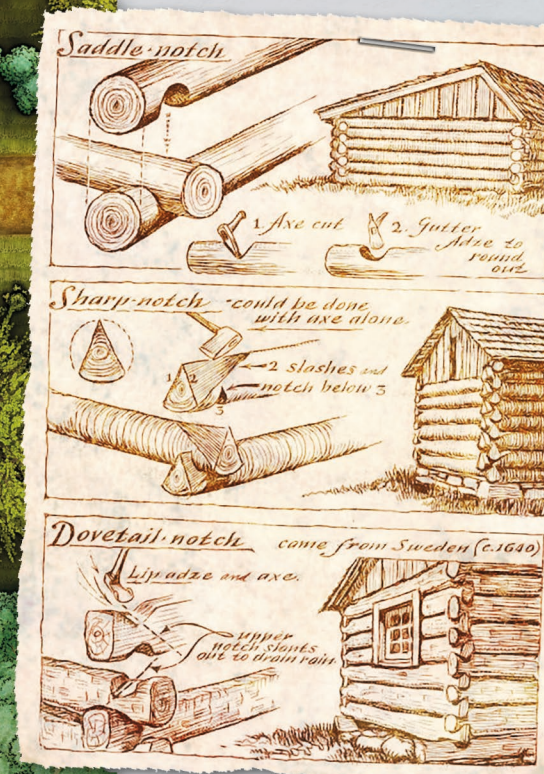 Saddle-notch
1. Axe cut
2. Gutter
Adze to
round
out
Sharp-notch - could be done
with axe alone.
1 2
3
2 slashes and
notch below 3
Dovetail-notch came from Sweden (c.1640)
Lip adze and axe.
upper
notch slants
out to drain rain.